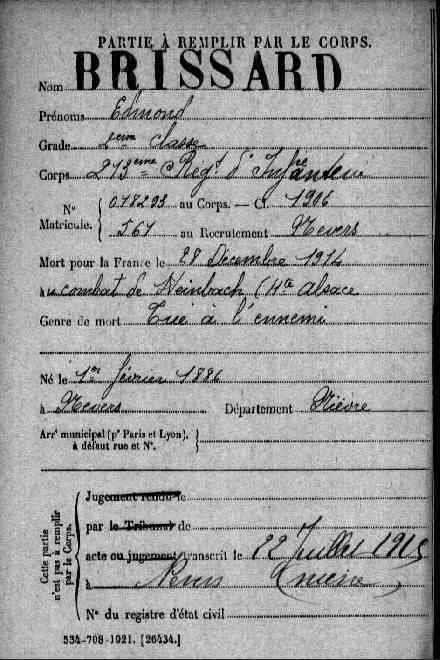 PARTIE À REMPLIR PAR LE CORPS.
Nom BRISSARD
Prénoms Edmond
Grade 2eme classe
Corps 213eme Regt d'Infanterie
N° Matricule. 018293 au Corps. — Cl. 1906
567 au Recrutement Nevers
Mort pour la France le 28 Décembre 1914
au combat de Steinbach (Hte Alsace
Genre de mort Tué à l'ennemi
Né le 1er février 1886
à Nevers Département Nièvre
Arrt municipal (pr Paris et Lyon), à défaut rue et N°.
Cette partie n'est pas à remplir par le Corps.
Jugement rendu le
par le Tribunal de
acte ou jugement transcrit le 22 Juillet 1915
à Nevers (Nièvre)
N° du registre d'état civil
534-708-1921. [26434.]